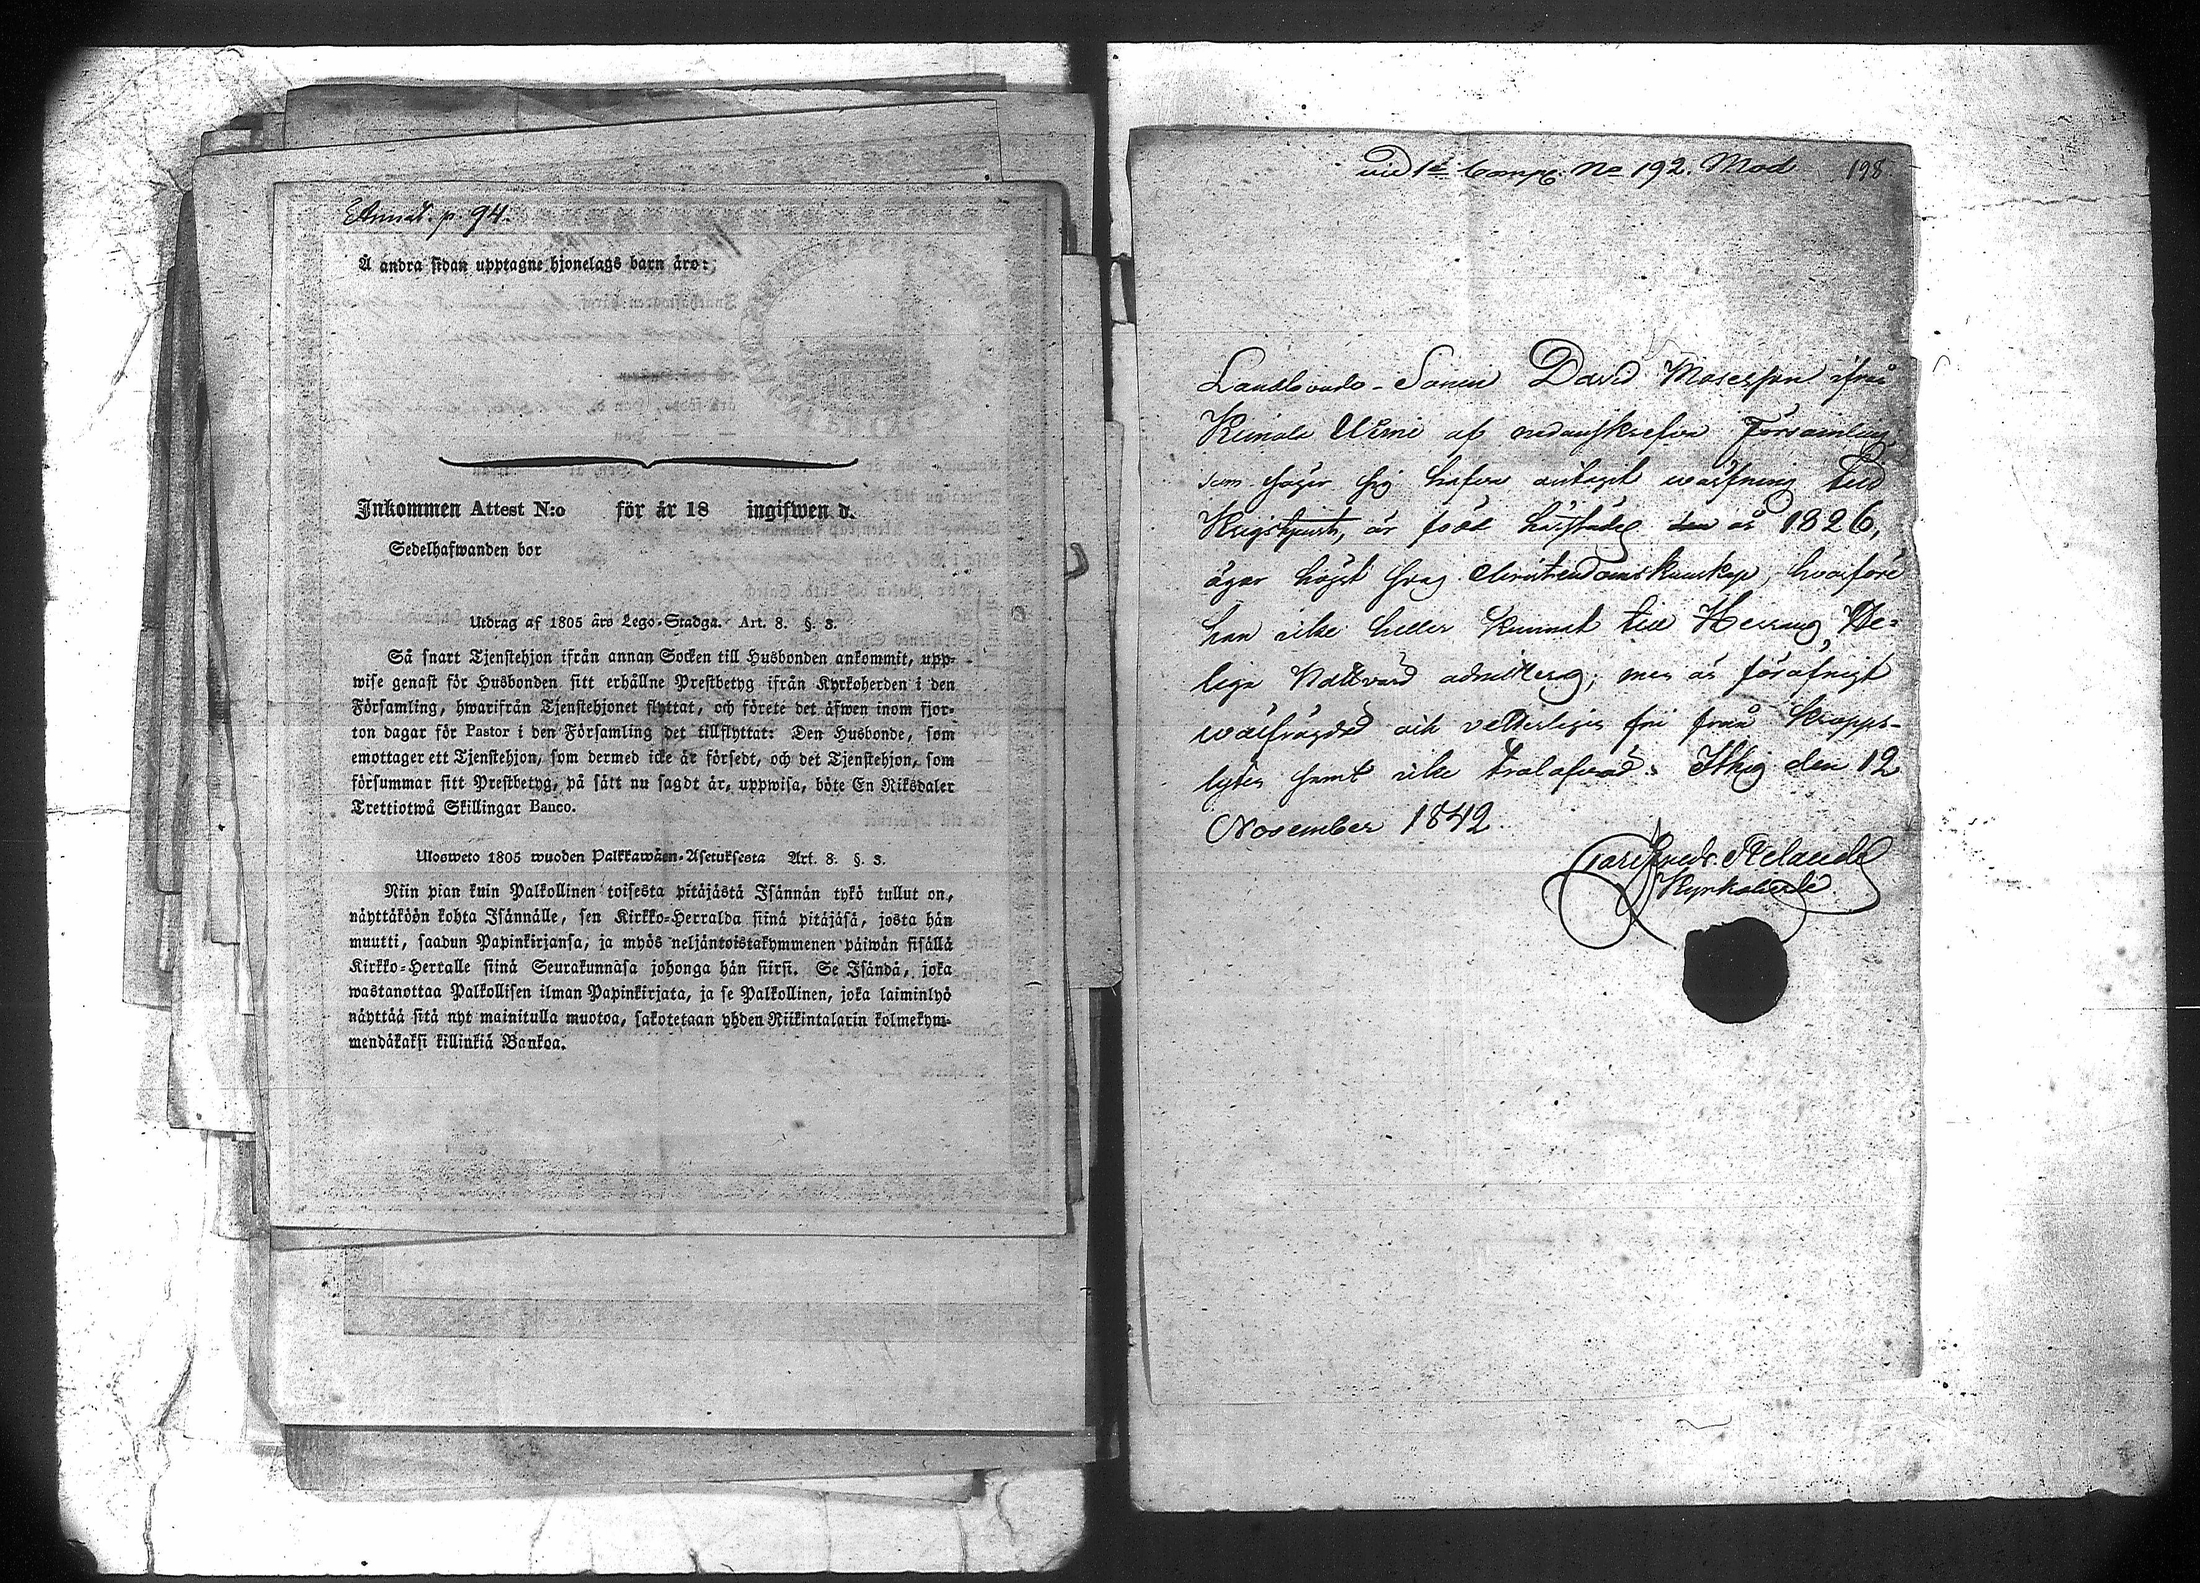 Annot. p. 94.
Å andra sidan upptagne hjonelags barn äro:
Inkommen Attest N:o för år 18 ingifwen d.
Sedelhafwanden bor
Utdrag af 1805 års Lego-Stadga. Art. 8. §. 3.
Så snart Tjenstehjon ifrån annan Socken till Husbonden ankommit, upp-
wise genast för Husbonden sitt erhållne Prestbetyg ifrån Kyrkoherden i den
Församling, hwarifrån Tjenstehjonet flyttat, och förete det äfwen inom fjor-
ton dagar för Pastor i den Församling det tillflyttat: Den Husbonde, som
emottager ett Tjenstehjon, som dermed icke är försedt, och det Tjenstehjon, som
försummar sitt Prestbetyg, på sätt nu sagdt är, uppwisa, böte En Riksdaler
Trettiotwå Skillingar Banco.
Ulosweto 1805 wuoden Palkkawäen-Asetuksesta Art. 8. §. 3.
Niin pian kuin Palkollinen toisesta pitäjästä Isännän tykö tullut on,
näyttäköön kohta Isännälle, sen Kirkko-Herralda siinä pitäjäsä, josta hän
muutti, saadun Papinkirjansa, ja myös neljäntoistakymmenen päiwän sisällä
Kirkko-Herralle siinä Seurakunnasa johonga hän siirsi. Se Isändä, joka
wastanottaa Palkollisen ilman Papinkirjata, ja se Palkollinen, joka laiminlyö
näyttää sitä nyt mainitulla muotoa, sakotetaan yhden Riikintalarin kolmekym-
mendäkaksi killinkiä Bankoa.
vid 1e Comp. No 192. Mod 198
Landbonde-Sonen David Mosesson ifrån
Keinala Urmi af nedanskrefne Församling
som säger sig hafva antagit värfning till
Krigstjenst, är född härstädes den år 1826,
äger högst svag Christendomskunskap, hvarföre
han icke heller kunnat till Herrans He-
liga Nattvard admitteras; men är för öfrigt
välfrägdad och vetterligen fri från kropps-
lyten samt icke trolofvad. Itthis den 12
November 1842.
Carl Fredr. Relander
Kyrkoherde.